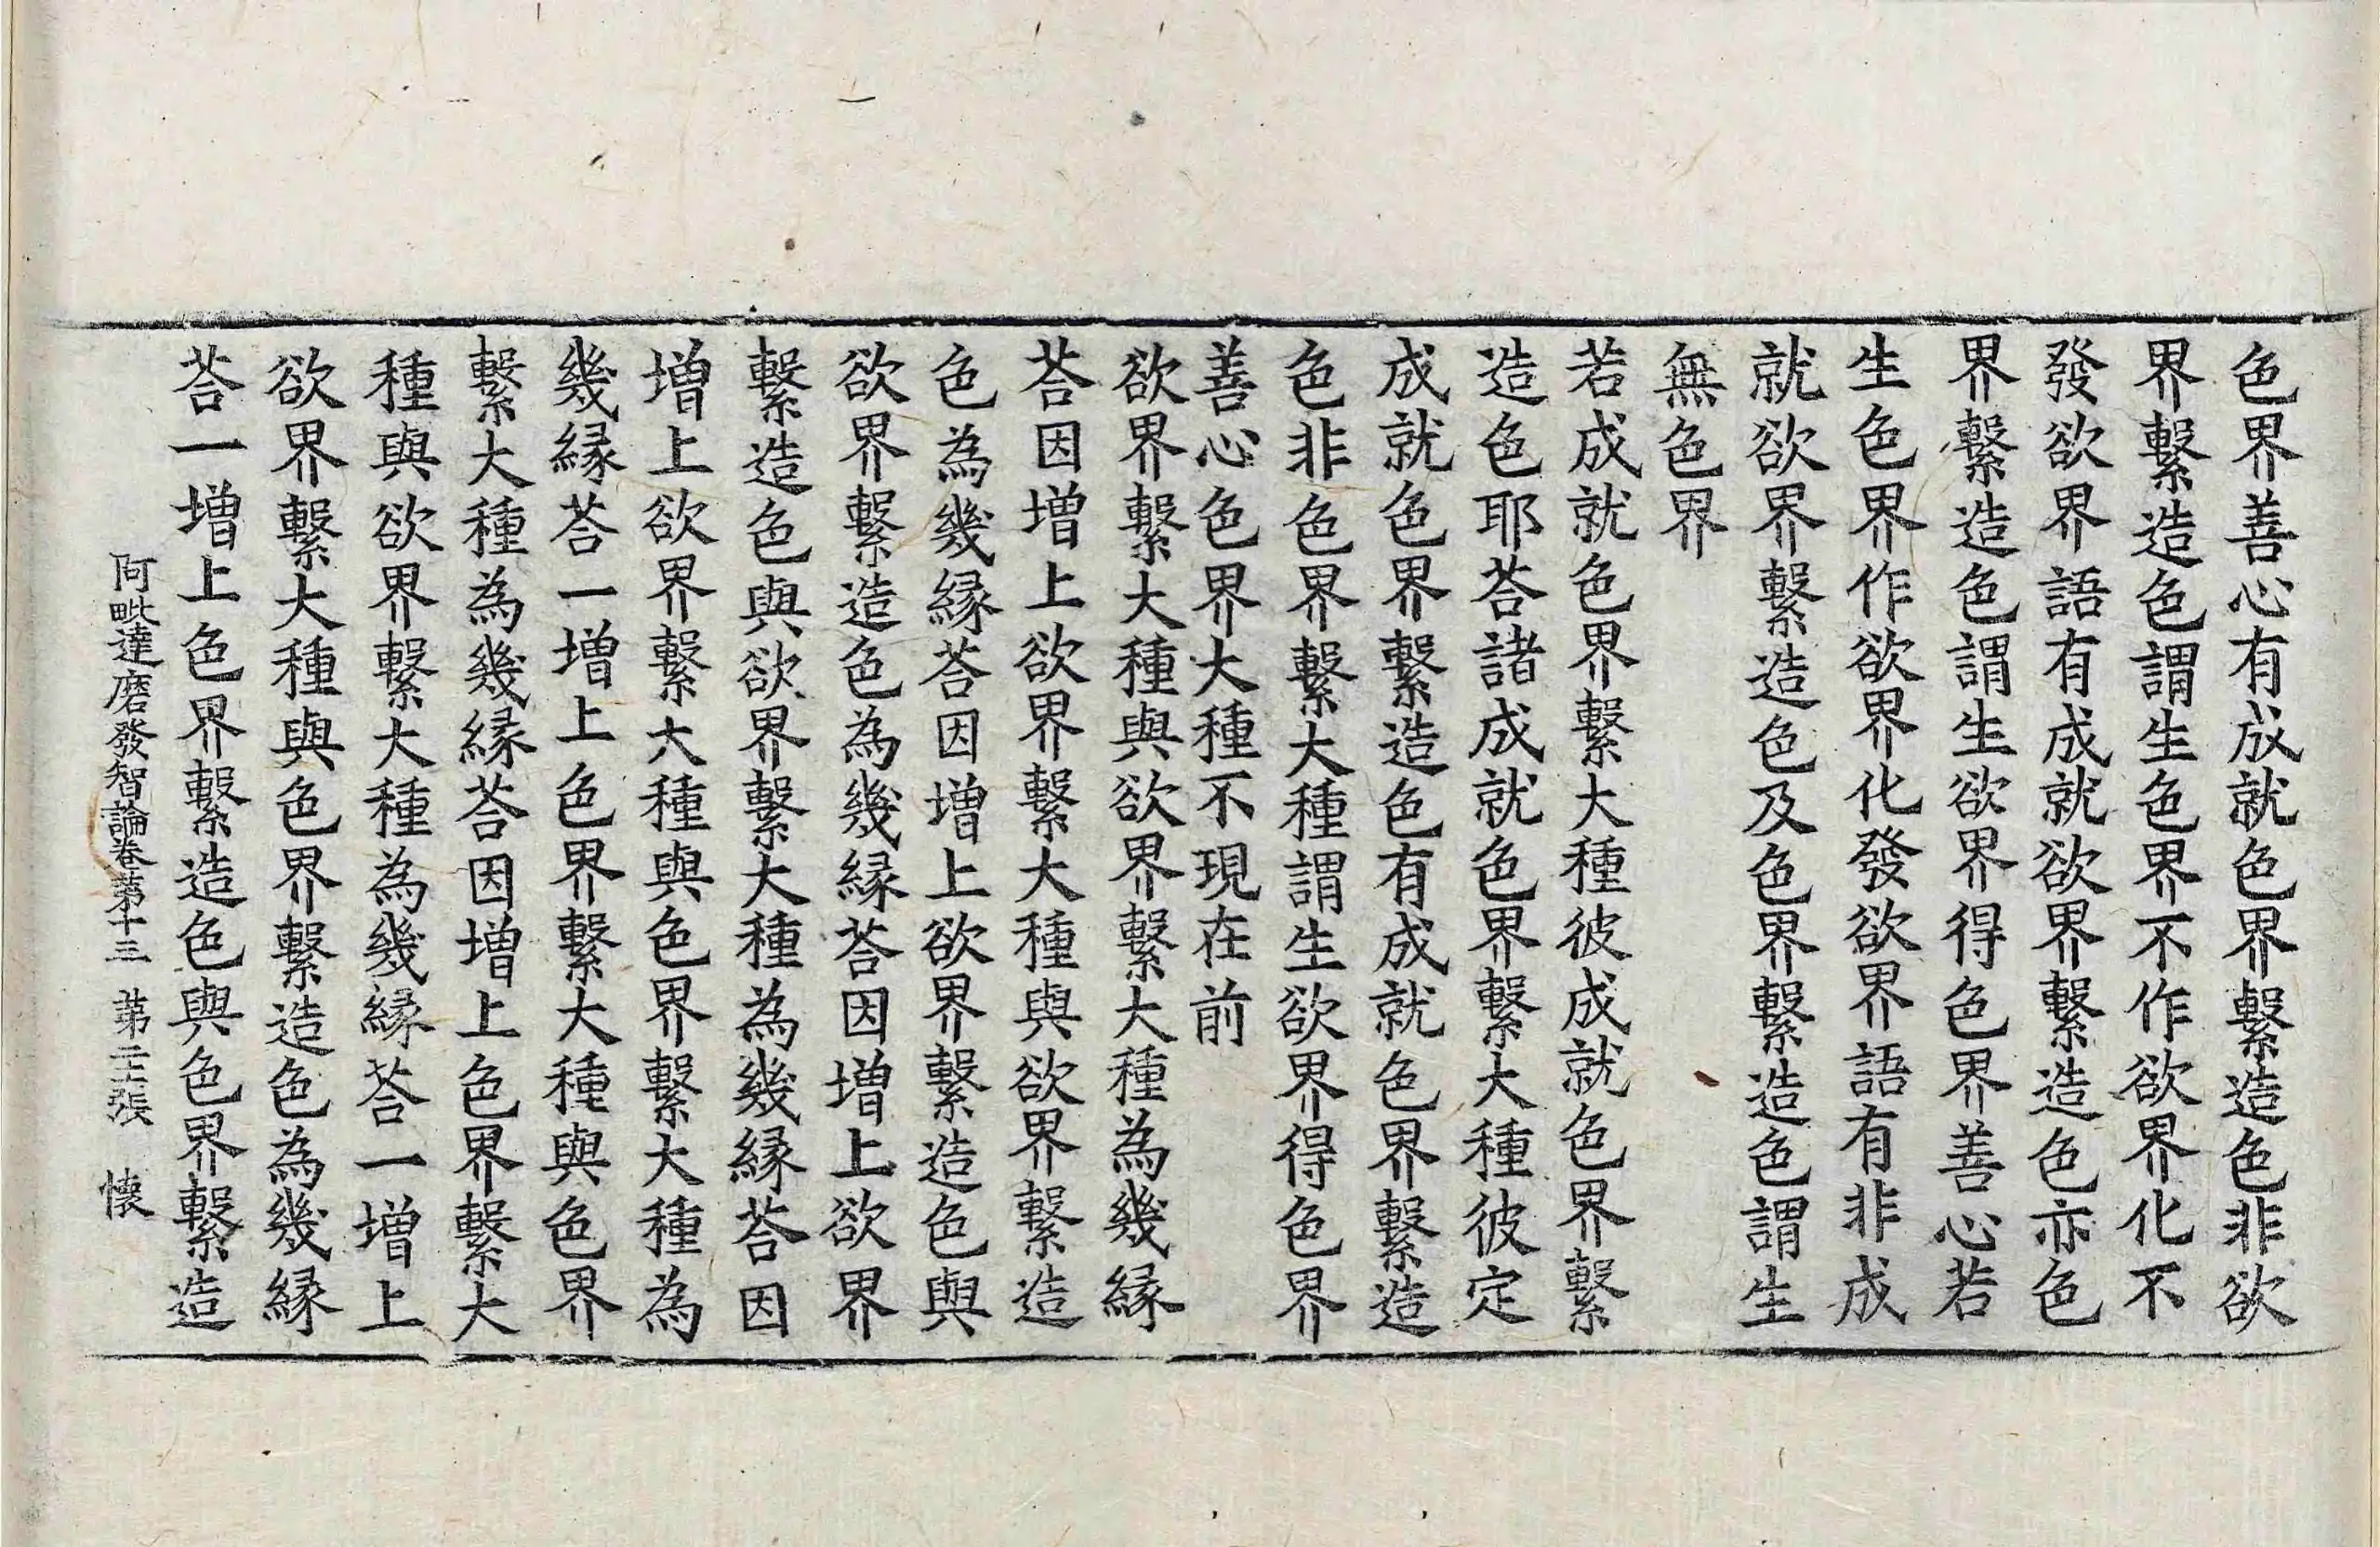 色界善心有成就色界繫造色非欲
界繫造色謂生色界不作欲界化不
發欲界語有成就欲界繫造色亦色
界繫造色謂生欲界得色界善心若
生色界作欲界化發欲界語有非成
就欲界繫造色及色界繫造色謂生
無色界
若成就色界繫大種彼成就色界繫
造色耶荅諸成就色界繫大種彼定
成就色界繫造色有成就色界繫造
色非色界繫大種謂生欲界得色界
善心色界大種不現在前
欲界繫大種與欲界繫大種為幾縁
荅因增上欲界繫大種與欲界繫造
色為幾縁荅因增上欲界繫造色與
欲界繫造色為幾縁荅因增上欲界
繫造色與欲界繫大種為幾縁荅因
增上欲界繫大種與色界繫大種為
幾縁荅一增上色界繫大種與色界
繫大種為幾縁荅因增上色界繫大
種與欲界繫大種為幾縁荅一增上
欲界繫大種與色界繫造色為幾縁
荅一增上色界繫造色與色界繫造
阿毗達磨發智論卷第十三 第二張 懐